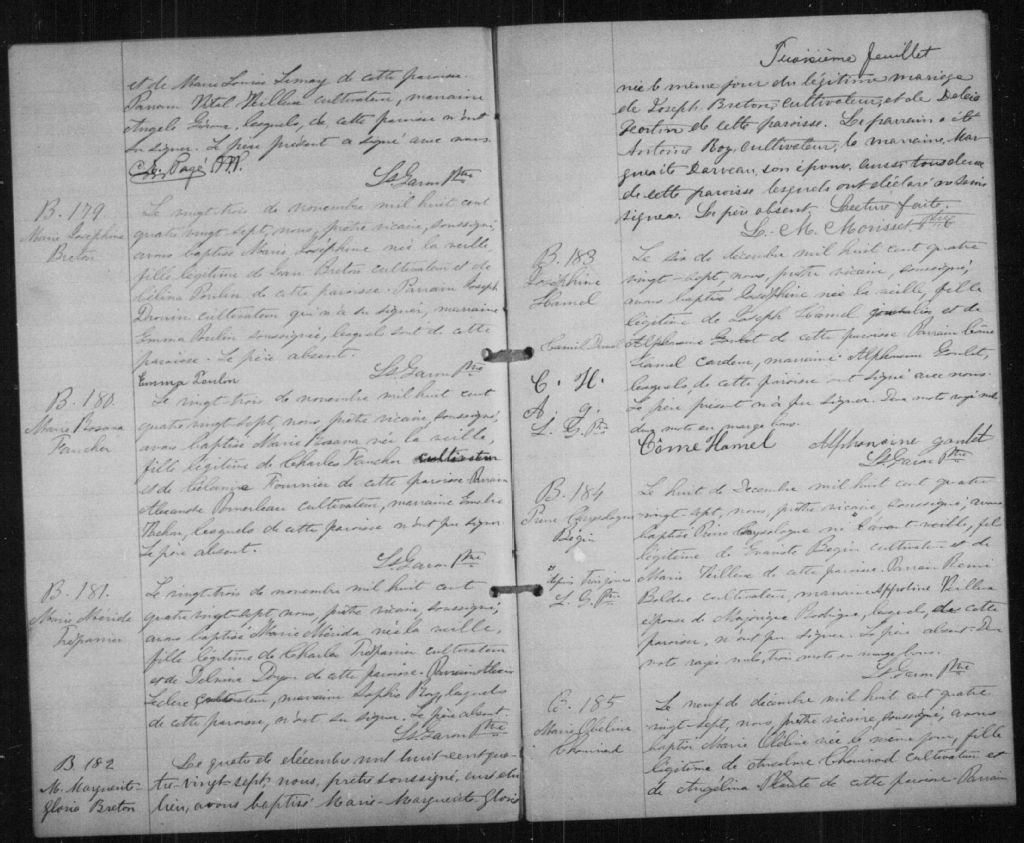 et de Marie Louise Lemay de cette paroisse.
Parrain Vital Veilleux cultivateur, marraine
Angele Giroux, lesquels, de cette paroisse n'ont
su signer. Le père présent a signé avec nous.
Chs Pagé
Ls Garon Ptre
B. 179.
Marie Josephine
Breton
Le vingt-trois de novembre mil huit cent
quatre vingt-sept, nous, prêtre vicaire, soussigné,
avons baptisé Marie Joséphine née la veille
fille légitime de Jean Breton cultivateur et de
Célina Poulin de cette paroisse. Parrain Joseph
Drouin cultivateur qui n'a su signer, marraine
Emma Poulin soussignée, lesquels sont de cette
paroisse. Le père absent.
Emma Poulin
Ls Garon Ptre
B. 180.
Marie Rosana
Faucher
Le vingt-trois de novembre mil huit cent
quatre vingt-sept, nous, prêtre vicaire, soussigné,
avons baptisé Marie Rosana née la veille,
fille légitime de Charles Faucher cultivateur
et de Fournier de cette paroisse. Parrain
Alexandre Pomerleau cultivateur, marraine
lesquels de cette paroisse n'ont pu signer
Le père absent.
Ls Garon Ptre
B. 181.
Marie Mérida
Trépanier
Le vingt-trois de novembre mil huit cent
quatre vingt-sept nous, prêtre vicaire, soussigné,
avons baptisé Marie Mérida née la veille,
fille légitime de Charles Trépanier cultivateur
et de Delvina Doyon de cette paroisse. Parrain
Leclerc cultivateur, marraine Sophie Roy, lesquels
de cette paroisse, n'ont su signer. Le père absent.
Ls Garon Ptre
B 182
M. Marguerite-
Gloria Breton
Le quatre de décembre mil huit-cent-qua-
tre-vingt-sept, nous, prêtre soussigné, curé du
lieu, avons baptisé Marie-Marguerite Gloria
Troisième feuillet
née le même jour du légitime mariage
de Joseph Breton, cultivateur, et de Délcia
de cette paroisse. Le parrain a été
Antoine Roy, cultivateur, la marraine, Mar-
guerite Darveau, son épouse, aussi tous deux
de cette paroisse lesquels ont déclaré ne savoir
signer. Le père absent. Lecture faite.
L. M. Morisset Ptre
B. 183
Joséphine
Hamel
Le six de décembre mil huit cent quatre
vingt-sept, nous, prêtre vicaire, soussigné,
avons baptisé Joséphine née la veille, fille
légitime de Joseph Hamel journalier et de
Alphonsine Goulet de cette paroisse Parrain Côme
Hamel marraine Alphonsine Goulet,
lesquels de cette paroisse ont signé avec nous.
Le père présent n'a pu signer. Deux mots rayés nuls
deux mots en marge bons.
C. H.
A. g.
L. G. Ptre
Côme Hamel Alphonsine goulet
Ls Garon Ptre
B. 184
Pierre Chrysologue
Bégin
L. G. Ptre
Le huit de Décembre mil huit cent quatre
vingt-sept, nous, prêtre vicaire, soussigné, avons
baptisé Pierre Chrysologue né l'avant veille, fils
légitime de Bégin cultivateur et de
Marie Veilleux de cette paroisse. Parrain Rémi
Bolduc cultivateur, marraine Appoline Veilleux
épouse de Majorique Rodrigue, lesquels, de cette
paroisse, n'ont pu signer. Le père absent. Deux
mots rayés nuls, trois mots en marge bons.
Ls Garon Ptre
B. 185
Marie Obéline
Chouinard
Le neuf de décembre mil huit cent quatre
vingt-sept, nous, prêtre vicaire, soussigné, avons
baptisé Marie Obéline née le même jour, fille
légitime de Anselme Chouinard cultivateur et
de Angélina Plante de cette paroisse. Parrain